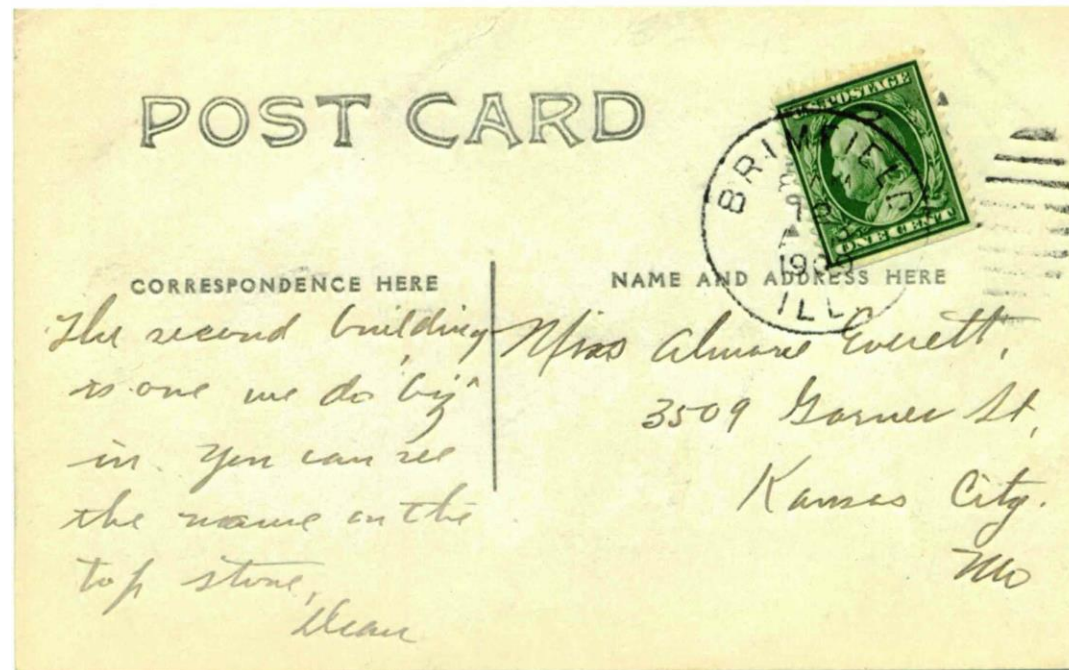 POST CARD
U.S. POSTAGE
ONE CENT
BRIMFIELD
ILL
CORRESPONDENCE HERE
The second building
is one we do "big"
in. You can see
the name on the
top stone,
Dean
NAME AND ADDRESS HERE
Miss Almore Everett,
3509 Garner St,
Kansas City.
Mo